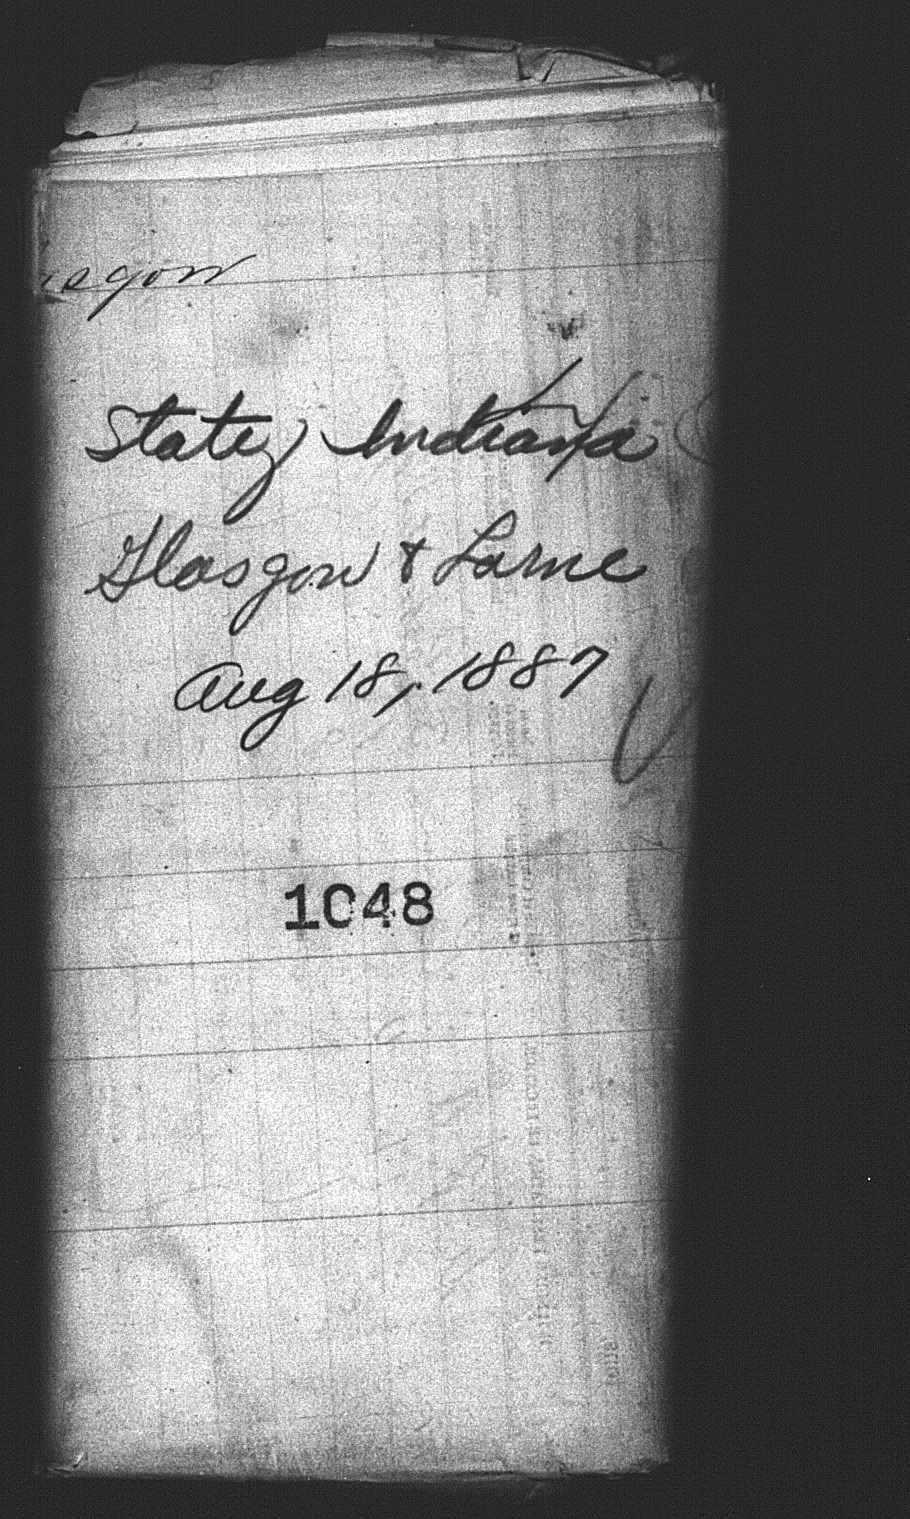 sgow
State, Indiana
Glasgow & Larne
Aug 18, 1887
1048